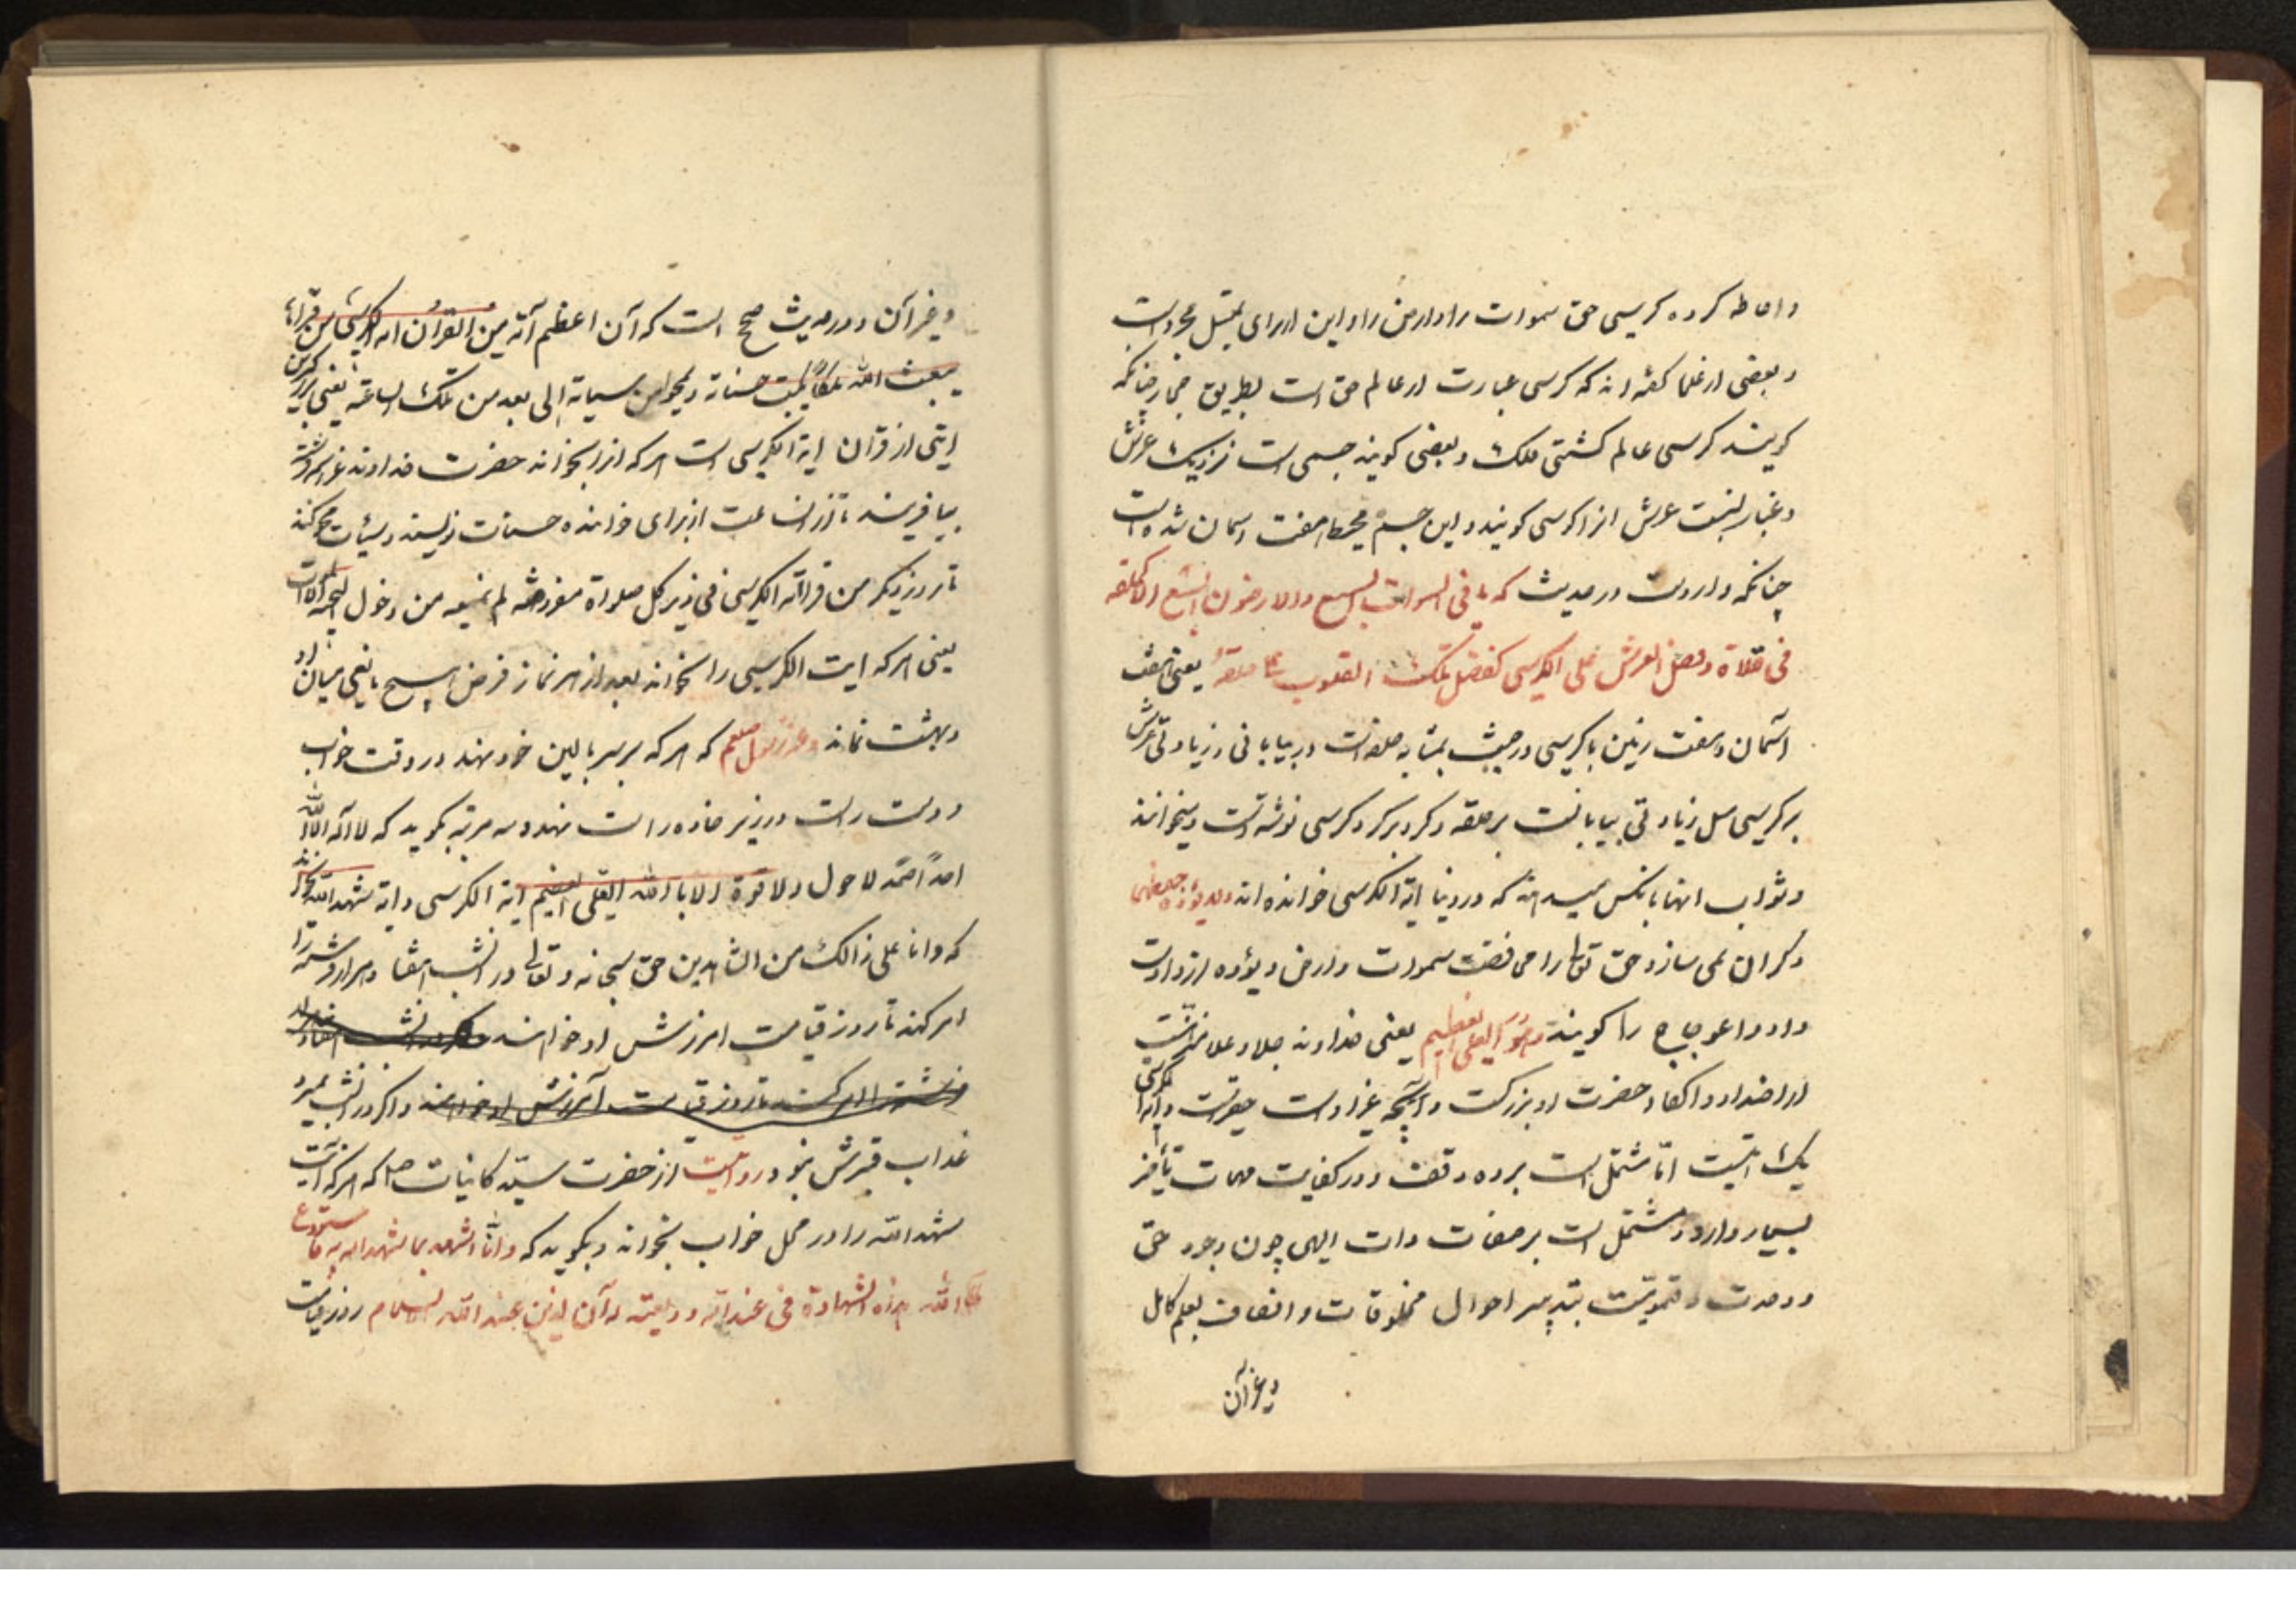 واحاطه کرده کرسی حق سموات را وارض را و این از برای تمثیل مجرد است
و بعضی از علما گفته اند که کرسی عبارت از عالم حق است بطریق مجاز چنانکه
گویند کرسی عالم کشتی ملک و بعضی گویند جسمی است نزدیک عرش
و عبارت بنسبت عرش انرا کرسی گویند و این جسم محیط هفت اسمان شده است
چنانکه وارد است در حدیث که ما فی السموات السبع والارضون السبع الا کحلقه
فی فلاة و فضل العرش علی الکرسی کفضل تلک علی حلقة یعنی هفت
آسمان و هفت زمین با کرسی در جنب بمثابه حلقه است در بیابانی و زیادتی عرش
بر کرسی مثل زیادتی بیابانست بر حلقه و گرد بر گرد کرسی نوشته است و میخوانند
و ثواب انها بانکس میدهند که در دنیا ایة الکرسی خوانده اند ولا یؤده حفظهما
و گران نمی سازد حق تعالی را محافظت سموات و ارض و یؤده از وادست
و اعوجاج را گویند وهو العلی العظیم یعنی خداوند جلا وعلا منزه است
از اضداد و اکفاء حضرت او بزرگست و آنچه غیر اوست حقیر است و ایة الکرسی
یک ایتست امّا مشتمل است بر ده وقف و در کفایت مهمات تأثیر
بسیار دارد و مشتمل است بر صفات ذات الهی چون وجود حق
و وحدت و قیومیت بتدبیر احوال مخلوقات و اتصاف بعلم کامل
و غیر آن
و غیر آن و در حدیث صحیح است که آن اعظم آیة من القرآن ایة الکرسی من قراءها
یبعث الله ملکاً یکتب حسناته و یمحوا من سیاته الی بعد من تلک الساعة یعنی بزرگترین
ایتی از قران ایة الکرسی است هر که انرا بخواند حضرت خداوند عز اسمه فرشته
بیافریند تا از ان ساعت از برای خواننده حسنات نویسند و سیئات محو کنند
تا روز دیگر من قرا آیة الکرسی فی دبر کل صلواة مفروضه لم یمنعه من دخول الجنة الا الموت
یعنی هر که ایت الکرسی را بخواند بعد از هر نماز فرض هیچ مانعی میان او
و بهشت نماند و عن رسول صلعم که هر که بر سر بالین خود نهد در وقت خواب
و دست راست در زیر خاده راست نهد و سه مرتبه بگوید که لا اله الا الله
احداً صمّد لا حول ولا قوة الا بالله العلی العظیم ایة الکرسی و ایة شهد الله بخواند
که وانا علی ذالک من الشاهدین حق سبحانه و تعالی در انشب هفتاد هزار فرشته را
امر کند تا روز قیامت امرزش او خواهند
و اگر در انشب بمیرد
عذاب قبرش نبود روایت از حضرت سیّد کاینات صلی که هر که آیت
شهد الله را در محل خواب بخواند و بگوید که وانا اشهد بما شهد الله به و استودع
الله هذه الشهادة فی عند الله ودیعته ان الدین عند الله الاسلام روز قیامت